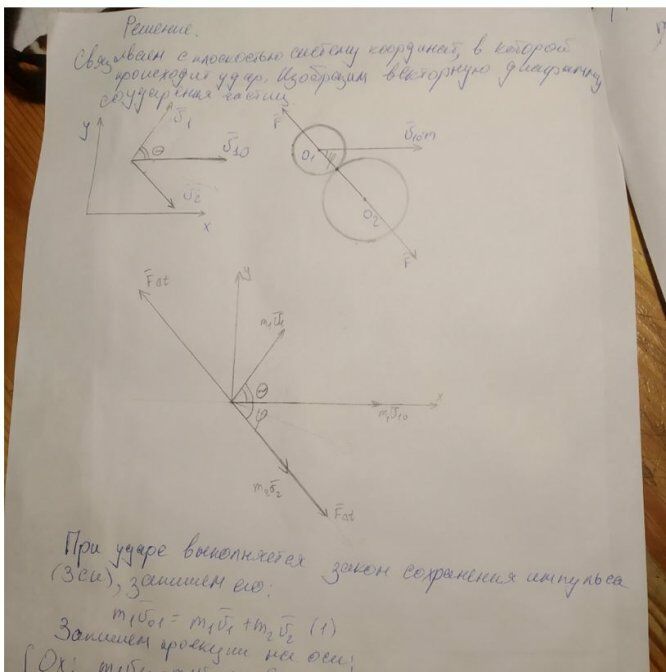 Решение.
Связываем с плоскостью систему координат, в которой
происходит удар. Изобразим векторную диаграмму
соударения частиц
y
υ̅₁
Θ
υ̅₁₀
υ̅₂
x
F̅
O₁
φ
υ̅₁₀m
O₂
F̅
F̅Δt
y
m₁υ̅₁
Θ
φ
x
m₁υ̅₁₀
m₂υ̅₂
F̅Δt
При ударе выполняется закон сохранения импульса
(ЗСИ), запишем его:
m₁υ̅₀₁ = m₁υ̅₁ + m₂υ̅₂ (1)
Запишем проекции на оси:
Ox: